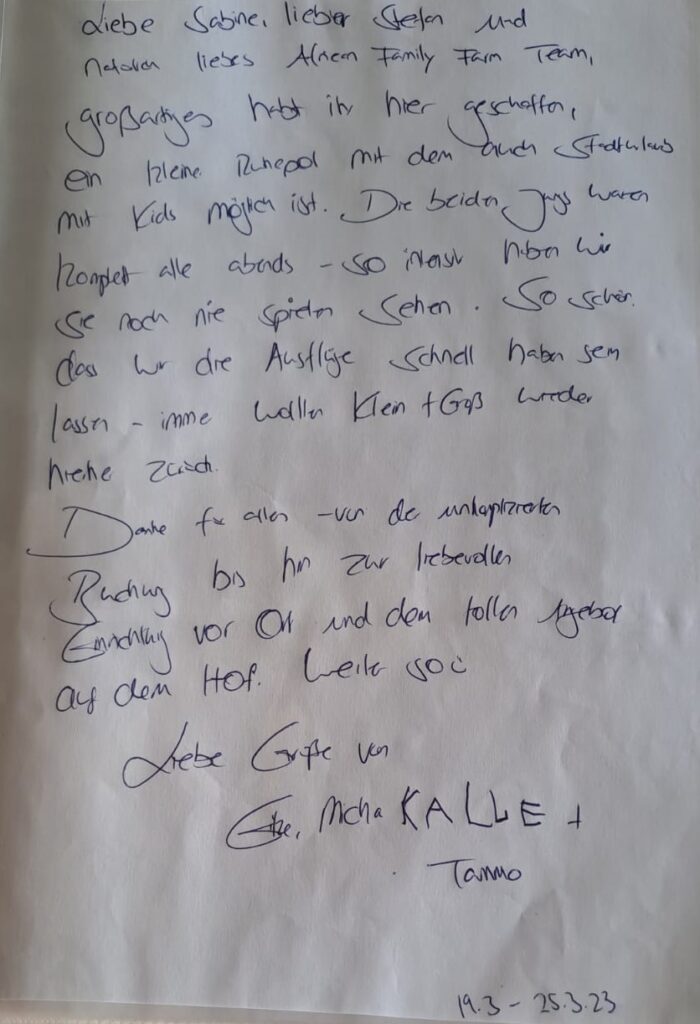 Liebe Sabine, lieber Stefan und
liebes Family Farm Team,
großartiges habt ihr hier geschaffen,
ein kleine Ruhepol mit dem auch Stadturlaub
mit Kids möglich ist. Die beiden Jungs waren
komplett alle abends - so intensiv haben wir
sie noch nie spielen sehen. So schön,
dass wir die Ausflüge schnell haben sein
lassen - immer wollten Klein + Groß wieder
hierher zurück.
Danke für alles - von der unkomplizierten
Buchung bis hin zur liebevollen
Einrichtung vor Ort und dem tollen Angebot
auf dem Hof. Weiter so!
Liebe Grüße von
Micha KALLE +
Tammo
19.3 - 25.3.23